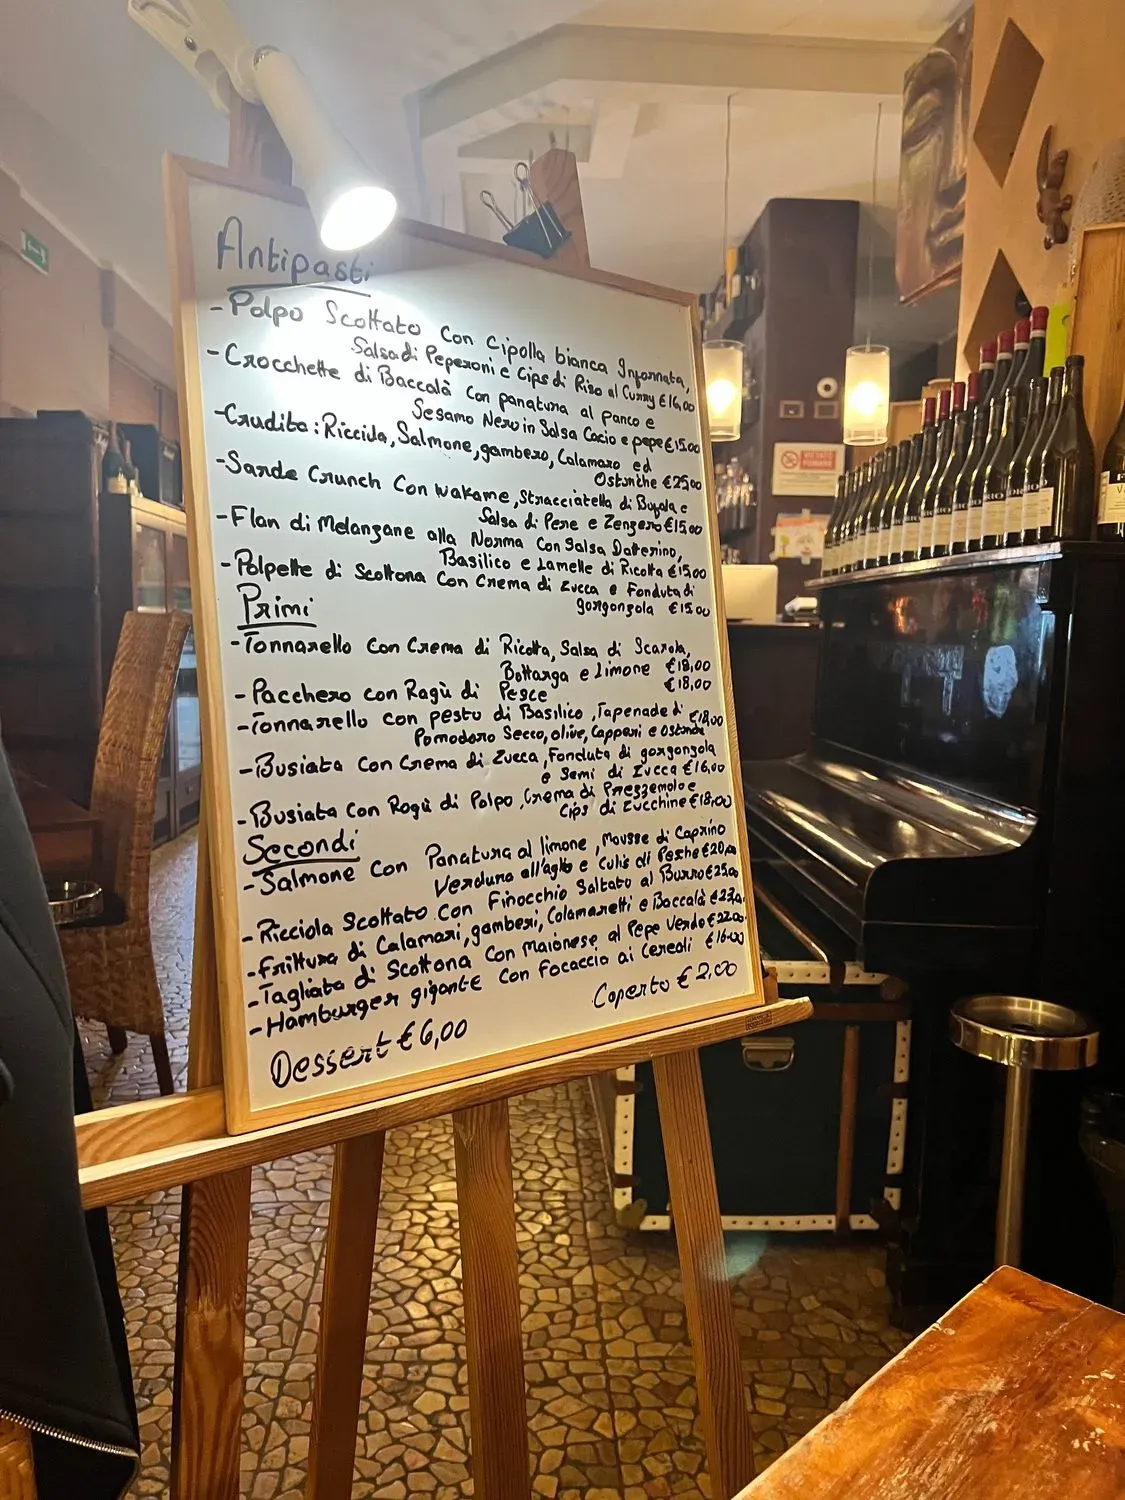 Antipasti
- Polpo Scottato con cipolla bianca Infornata,
Salsa di Peperoni e Cips di Riso al Curry €16,00
- Crocchette di Baccalà con panatura al panco e
Sesamo Nero in Salsa Cacio e pepe €15.00
- Crudità: Ricciola, Salmone, gambero, Calamaro ed
Ostriche €25,00
- Sarde Crunch con wakame, Stracciatella di Bufala e
Salsa di Pere e Zenzero €15,00
- Flan di Melanzane alla Norma con Salsa Datterino,
Basilico e Lamelle di Ricotta €15,00
- Polpette di Scottona con Crema di Zucca e Fonduta di
gorgongola €15.00
Primi
- Tonnarello con Crema di Ricotta, Salsa di Scarola,
Bottarga e Limone €18,00
- Pacchero con Ragù di Pesce €18,00
- Tonnarello con pesto di Basilico, Tapenade di €18,00
Pomodoro Secco, olive, Capperi e
- Busiata con Crema di Zucca, Fonduta di gorgongola
e Semi di Zucca €16,00
- Busiata con Ragù di Polpo, Crema di Prezzemolo e
Cips di Zucchine €18,00
Secondi
- Salmone con Panatura al limone, Mousse di Caprino
Verdura all'aglio e Culis di Pesche €20,00
- Ricciola Scottato con Finocchio Saltato al Burro €25,00
- Frittura di Calamari, gamberi, Calamaretti e Baccalà €23,00
- Tagliata di Scottona con Maionese al Pepe Verde €22.00
- Hamburger gigante con Focaccia ai Cereali €16.00
Coperto € 2,00
Dessert € 6,00
VIETATO
FUMARE